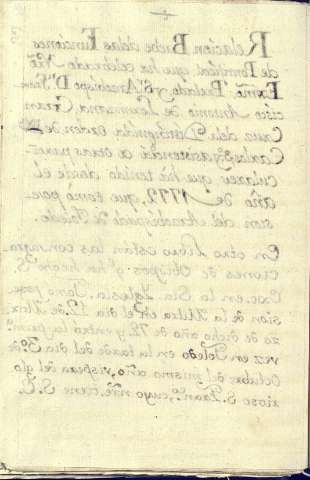 Relacion Breve delas Funciones
de Pontifical que ha celebrado Nrõ
Exmõ Prelado y Sr. Arzobispo Dn. Fran
cisco Antonio de Lorenzana Gran
Cruz dela Distinguida orden de
Carlos 3º y asistencia a otras
que ha tenido desde el
año de 1772, que tomó pose-
sion del Arzobispado de Toledo.
En otro Libro están las consagra-
ciones de Obispos q.e ha hecho S.
Exc.a en la Sta Iglesia. Tomó pose-
sion de la Mitra en el dia 12 de Mar-
zo de dicho año de 72, y entró la prim.a
vez en Toledo en la tarde del dia 3º de
Octubre del mismo año, vispera del glo-
rioso S. Fran.co, cuyo nrẽ tiene S. E.